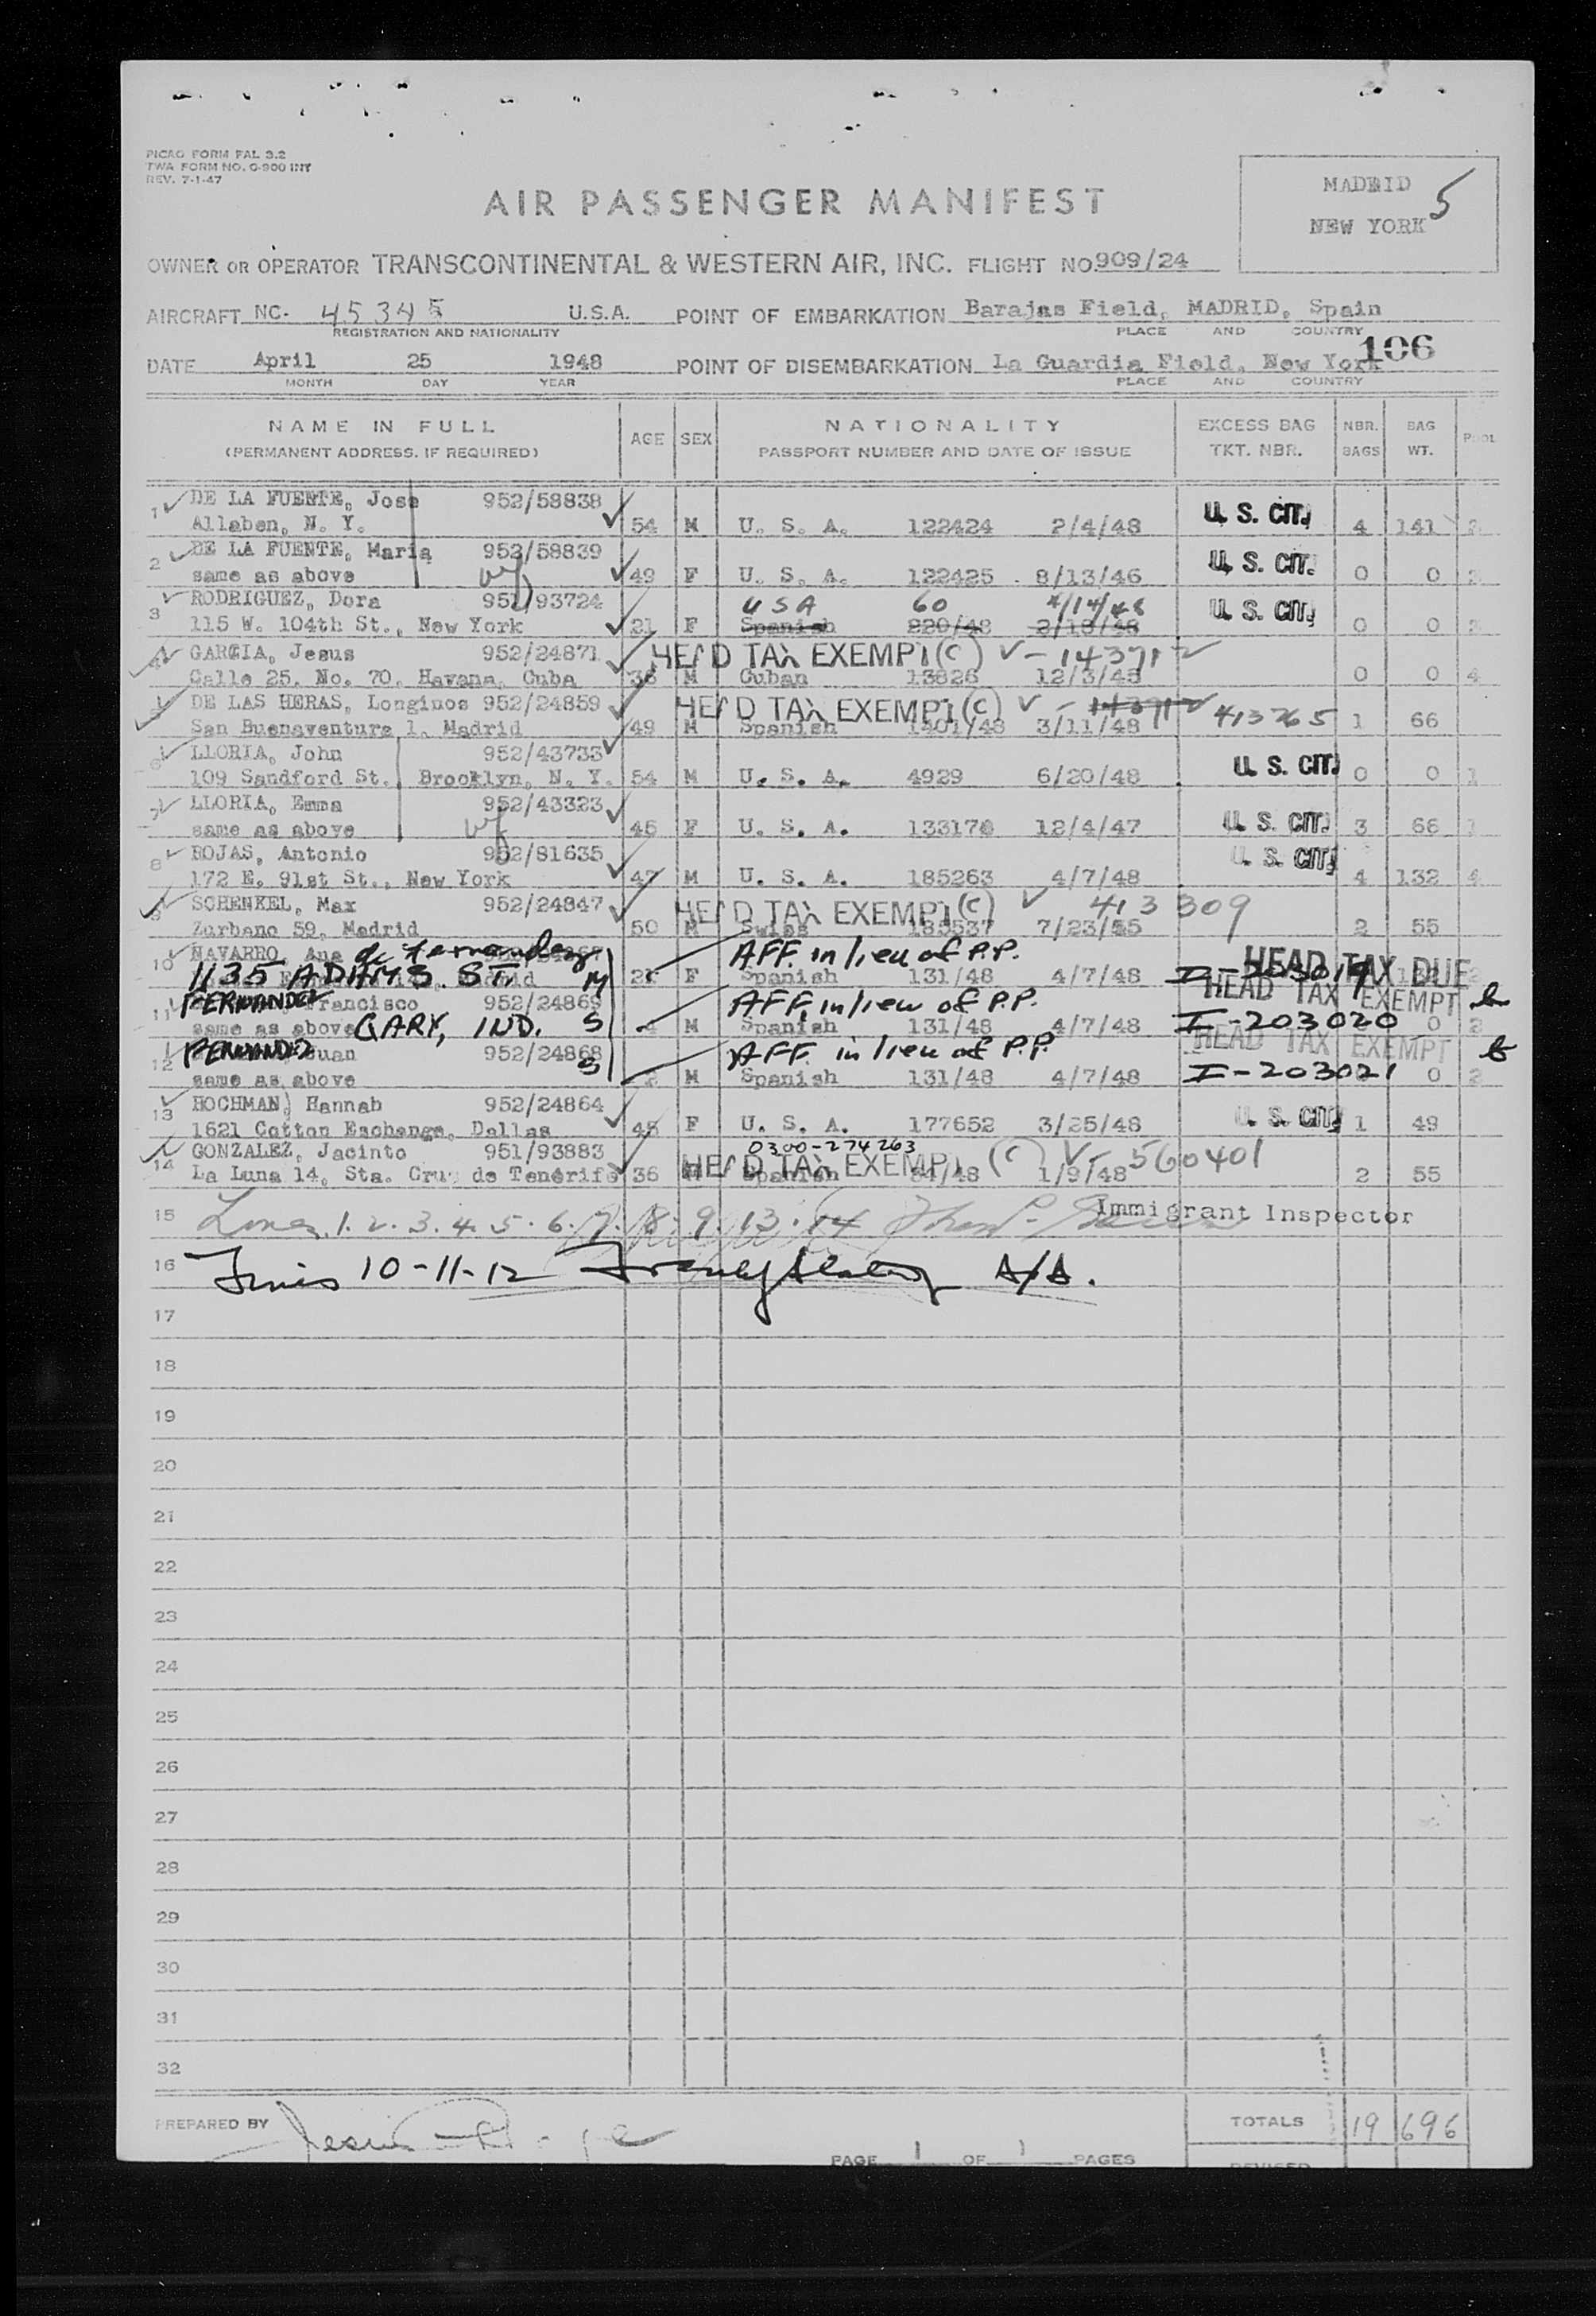 PICAO FORM FAL 3.2
TWA FORM NO. O-900 INT
REV. 7-1-47
MADRID
NEW YORK 5
AIR PASSENGER MANIFEST
OWNER OR OPERATOR TRANSCONTINENTAL & WESTERN AIR, INC. FLIGHT NO. 909/24
AIRCRAFT NC- 45345 U.S.A. POINT OF EMBARKATION Barajas Field, MADRID, Spain
REGISTRATION AND NATIONALITY PLACE AND COUNTRY
106
DATE April 25 1948 POINT OF DISEMBARKATION La Guardia Field, New York
MONTH DAY YEAR PLACE AND COUNTRY
NAME IN FULL AGE SEX NATIONALITY EXCESS BAG NBR. BAG POOL
(PERMANENT ADDRESS, IF REQUIRED) PASSPORT NUMBER AND DATE OF ISSUE TKT. NBR. BAGS WT.
1 DE LA FUENTE, Jose 952/58838 U. S. CIT.
Allaben, N. Y. 54 M U. S. A. 122424 2/4/48 4 141 2
2 DE LA FUENTE, Maria 952/58839 U. S. CIT.
same as above 49 F U. S. A. 122425 8/13/46 0 0 2
3 RODRIGUEZ, Dora 951/93724 USA 60 4/14/48 U. S. CIT.
115 W. 104th St., New York 21 F Spanish 220/48 2/18/48 0 0 2
4 GARCIA, Jesus 952/24871 HEAD TAX EXEMPT (C) - 143712
Calle 25, No. 70, Havana, Cuba 36 M Cuban 13826 12/3/45 0 0 4
5 DE LAS HERAS, Longinos 952/24859 HEAD TAX EXEMPT (C) - 143712 413265
San Buenaventura 1, Madrid 49 M Spanish 1401/48 3/11/48 1 66
6 LLORIA, John 952/43733 U. S. CIT.
109 Sandford St., Brooklyn, N. Y. 54 M U. S. A. 4929 6/20/48 0 0 1
7 LLORIA, Emma 952/43323
same as above 45 F U. S. A. 133170 12/4/47 U. S. CIT. 3 66 1
8 ROJAS, Antonio 952/81635 U. S. CIT.
172 E. 91st St., New York 47 M U. S. A. 185263 4/7/48 4 132 4
9 SCHENKEL, Max 952/24847 HEAD TAX EXEMPT (C) 413309
Zurbano 59, Madrid 50 M Swiss 185537 7/23/45 2 55
10 NAVARRO, Ana de Fernandez AFF. in lieu of P.P. HEAD TAX DUE
1135 ADAMS ST. M F Spanish 131/48 4/7/48 I-203019
11 FERNANDEZ Francisco 952/24869 AFF. in lieu of P.P. HEAD TAX EXEMPT
same as above GARY, IND. S 4 M Spanish 131/48 4/7/48 I-203020 0 2
12 FERNANDEZ Juan 952/24868 S AFF. in lieu of P.P. HEAD TAX EXEMPT
same as above M Spanish 131/48 4/7/48 I-203021 0 2
13 HOCHMAN, Hannah 952/24864 U. S. CIT.
1621 Cotton Exchange, Dallas 45 F U. S. A. 177652 3/25/48 1 49
0300-274263
14 GONZALEZ, Jacinto 951/93883 HEAD TAX EXEMPT (C) - 560401
La Luna 14, Sta. Cruz de Tenerife 36 M Spanish 84/48 1/9/48 2 55
15 Lines 1. 2. 3. 4. 5. 6. 7. 8. 9. 13. 14 Immigrant Inspector
16 Lines 10-11-12
17
18
19
20
21
22
23
24
25
26
27
28
29
30
31
32
PREPARED BY Jesus TOTALS 19 696
PAGE 1 OF 1 PAGES REVISED